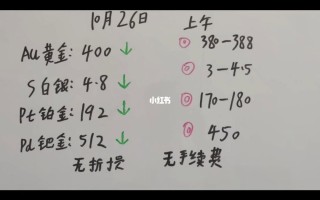 10月26日 上午
Au黄金: 400 ↓ 380-388
S白银: 4.8 ↓ 3-4.5
Pt铂金: 192 ↓ 170-180
Pd钯金: 512 ↓ 450
无折损 无手续费
小红书